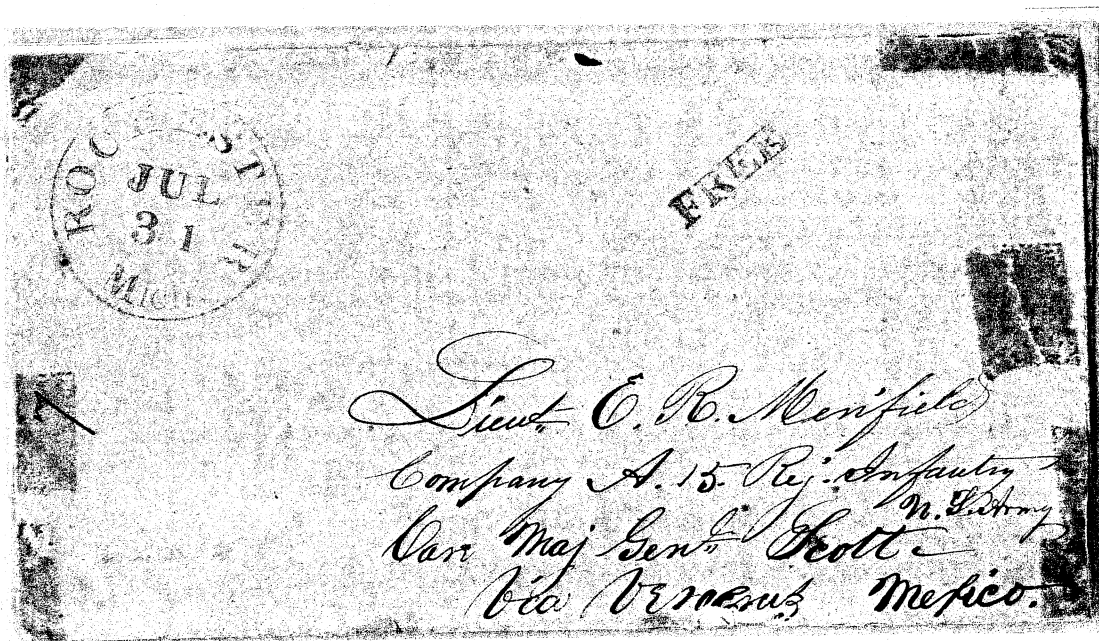 ROCHESTER
JUL
31
MICH
FREE
Lieut. E. R. Merifield
Company A. 15 Reg. Infantry
U. S. Army
Care Maj Genl Scott
Via Veracruz Mexico.